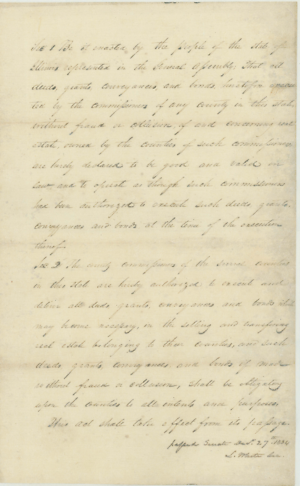 Sec 1 Be it enacted by the people of the state of
Illinois represented in the General Assembly, That all
deeds, grants, conveyances and bonds heretofore
ted by the commissioners of any county in this state
without fraud or collusion, of and concerning real
estate, owned by the counties of such commissioners
are hereby declared to be good and valid in
law, and to operate as though such commissioners
had been authorized to execute such deeds, grants,
conveyances and bonds at the time of the execution
thereof.
Sec 2 The county commissioners of the several counties
in this state are hereby authorized to execute and
deliver all deeds, grants, conveyances and bonds which
may become necessary, in the selling and transferring
real estate belonging to their counties, and such
deeds, grants, conveyances and bonds if made
without fraud or collusion, shall be obligatory
upon the counties to all intents and purposes.
This act shall take effect from its passage
passed Senate 27th
L. White Sec.